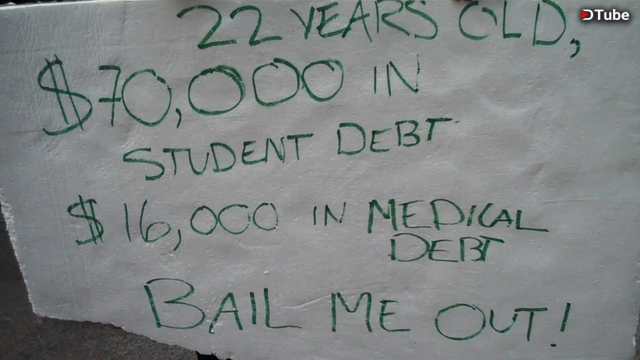 DTube
22 YEARS OLD,
$70,000 IN
STUDENT DEBT
$16,000 IN MEDICAL
DEBT
BAIL ME OUT!